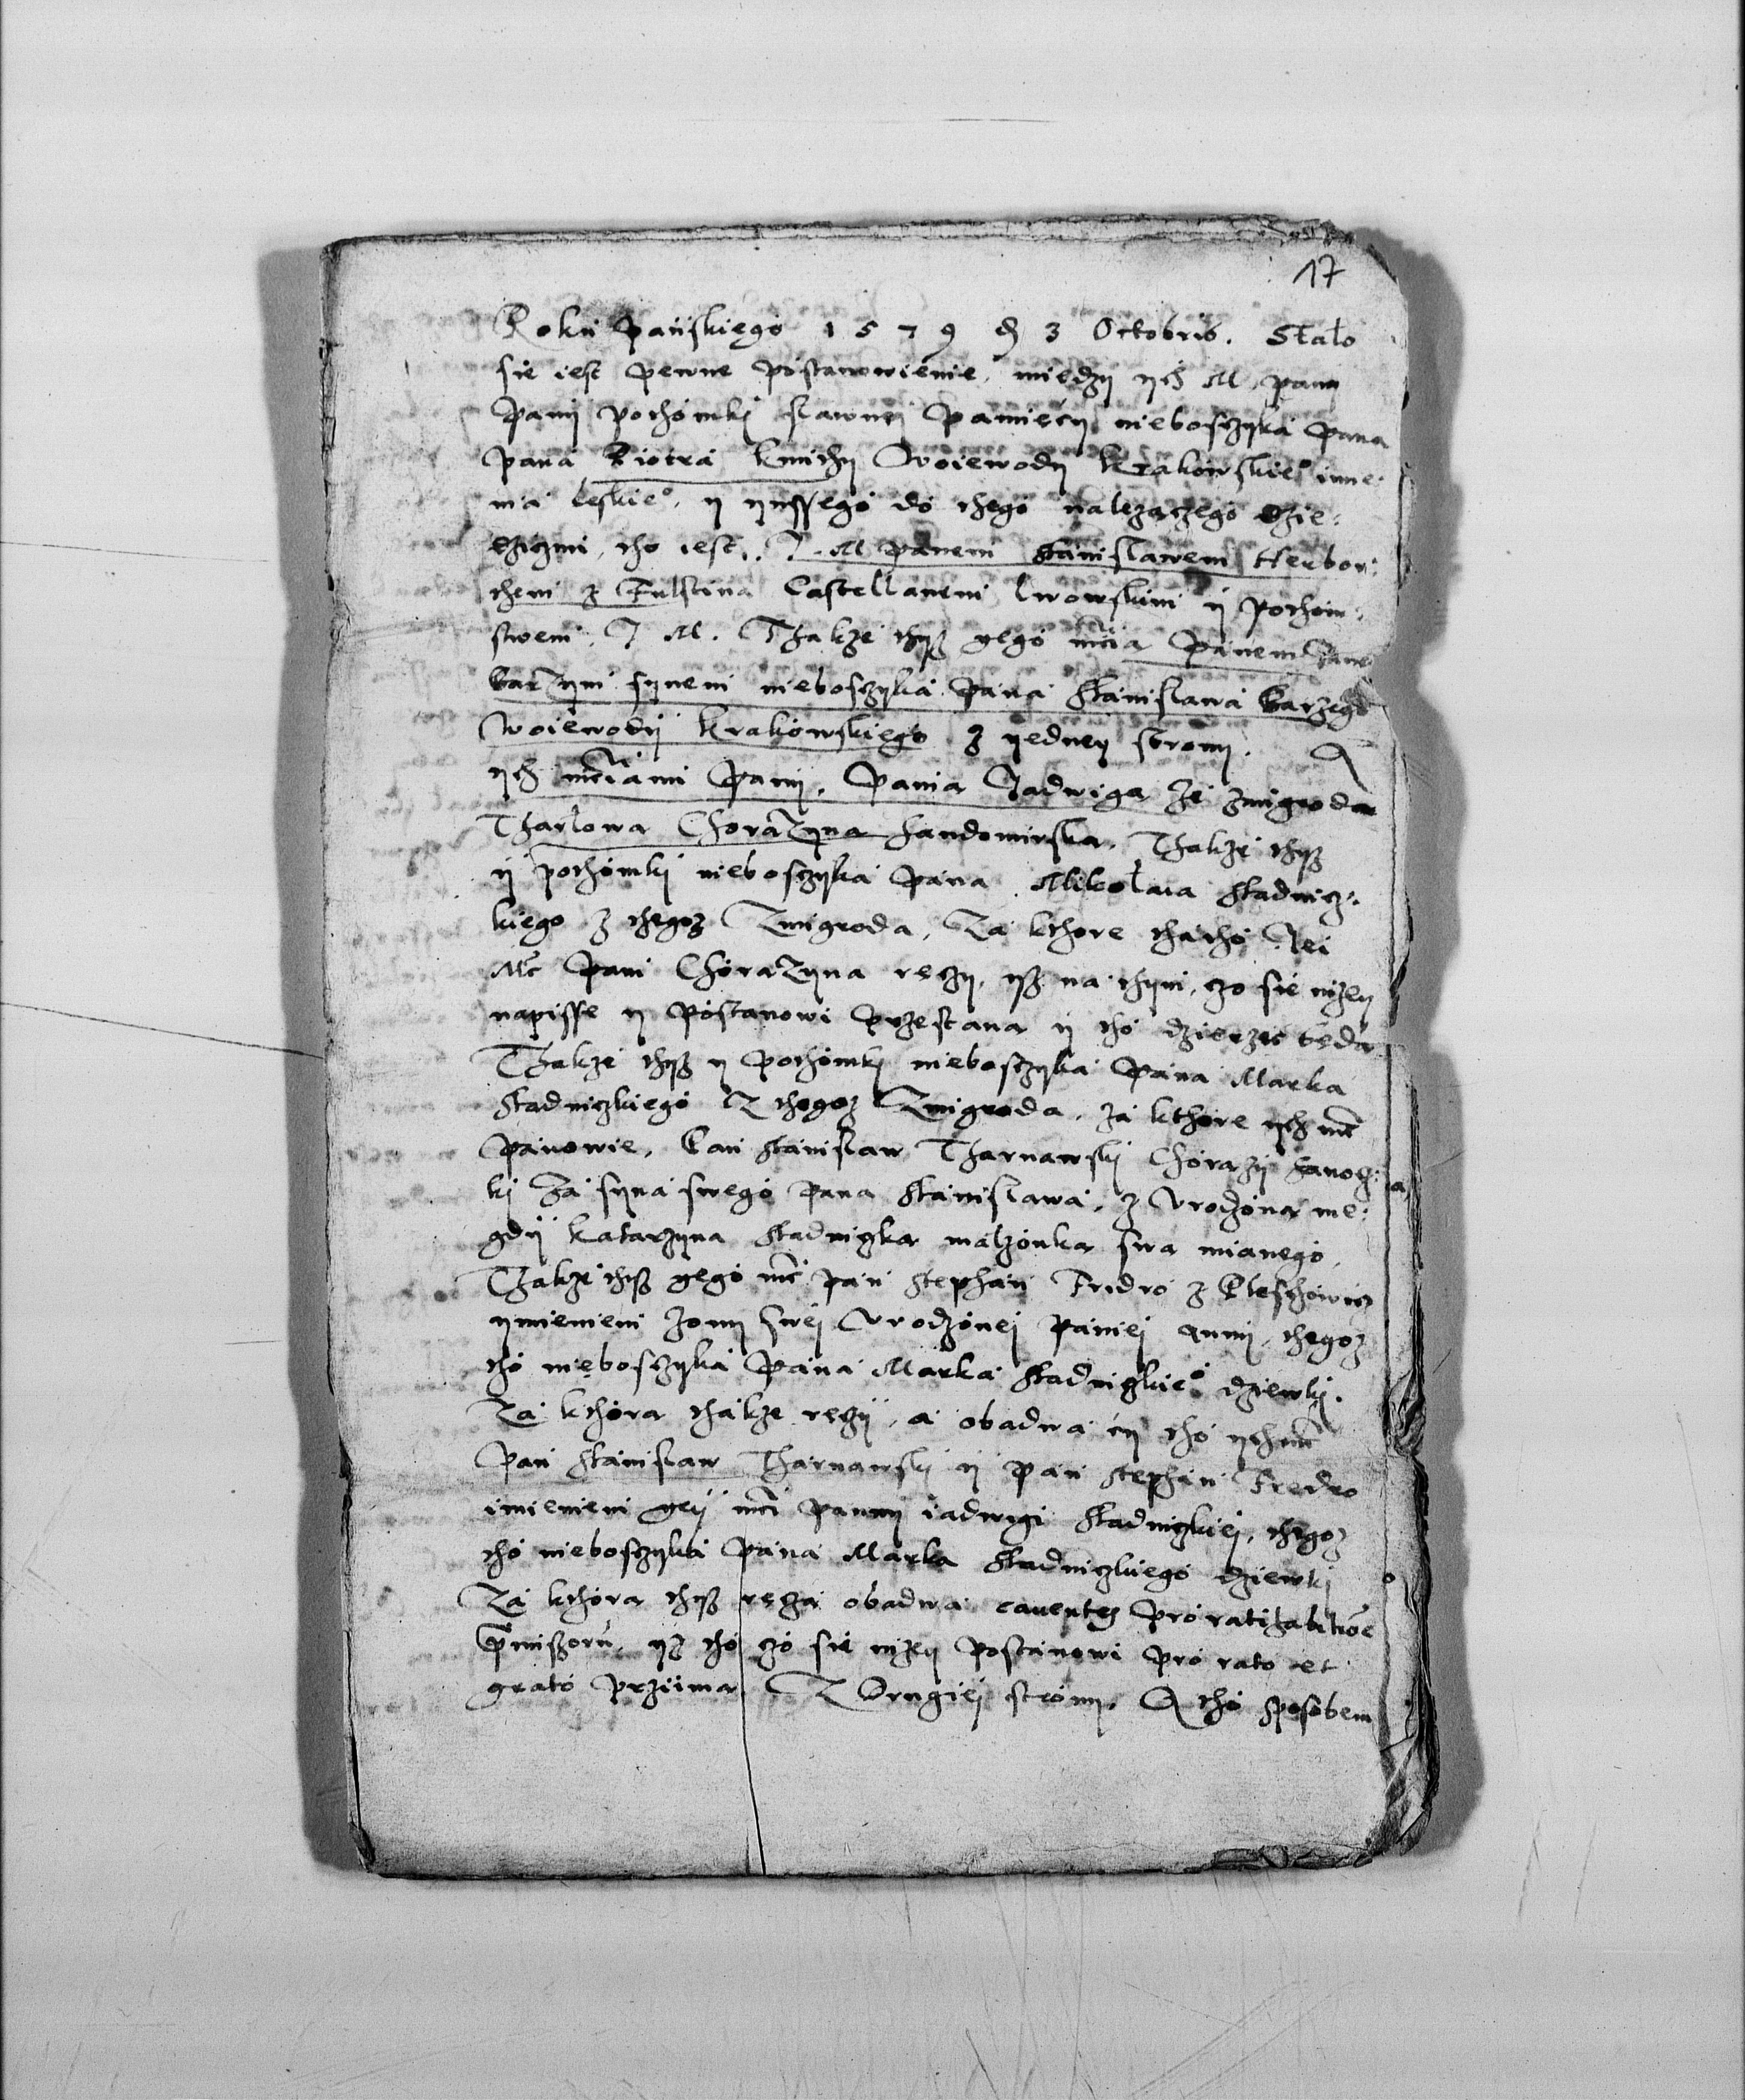 17
Roku Pańskiego 1579 d 3 Octobris. Stało
sie iest pewne postanowienie, miedzy ych M. pany
Pany pothomki slawney pamieczy niebosczyka pana
pana Piotra Kmithy Woiewody Krakowskie° imie:
nia leskie°, y ynssego do thego nalezaczego dzie:
dziczmi, tho iest. J. M. panem Stanislawem Herbor:
them z Fulstina Castellanem lwowskim y pothom:
stwem J. M. Thakze thysz yego mcia panem Jane
Barzym synem niebosczyka pana Stanislawa Barzego
woiewody Krakowskiego z yedney strony. A
ych mciami Pany, Pania Jadwiga ze Zmigroda
Tharlowa Chorazyna Sandomirska, Thakze thysz
y pothomky niebosczyka pana Mikolaia Stadnicz:
kiego z thegoz Zmigroda, Za kthore thatho Jei
Mc Pani Chorazyna reczy, ysz na thym, czo sie nizey
napisse y postanowi przestana y tho dzierzec beda
Thakze thysz y pothomky niebosczyka pana Marka
Stadniczkiego Z thegoz Zmigroda, za kthore ych mc
panowie, Pan Stanislaw Tharnawsky Chorazy Sanocz:
ky Za syna swego pana Stanislawa, z Vrodzona nie:
gdy Katarzyna Stadniczka malzonka swa mianego,
Thakze thysz yego mc pan Stephan Fredro z Pleschowicz
ymieniem zony swej Vrodzonej paniej Anny, thegoz
tho niebosczyka pana Marka Stadniczkie° dziewky.
Za kthora thakze reczy, a obadwa cy tho ych mc
Pan Stanislaw Tharnawsky y pan Stephan Fredro
imieniem yey mci panny Jadwigi Stadniczkiej, thegoz
tho niebosczyka pana Marka Stadniczkiego dziewky
Za kthora thysz recza obadwa cauentes pro ratihabitioe
pmissoru, yz tho czo sie nizey postanowi pro rato et
grato przyima Z Drugiej strony. A tho sposobem